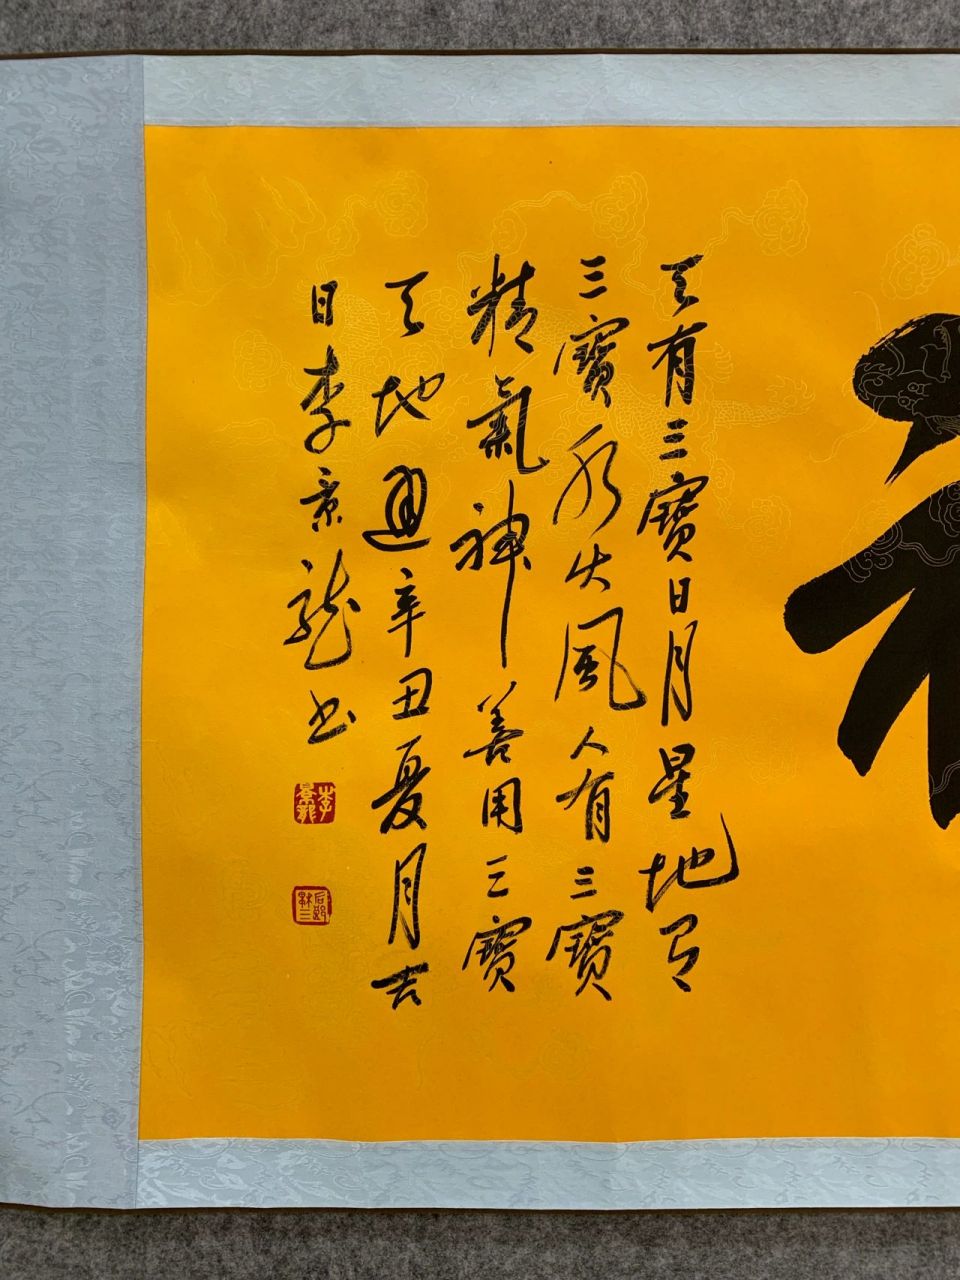 天有三寶日月星地有
三寶水火風人有三寶
精氣神善用三寶
天地通辛丑夏月吉
日李景龍书